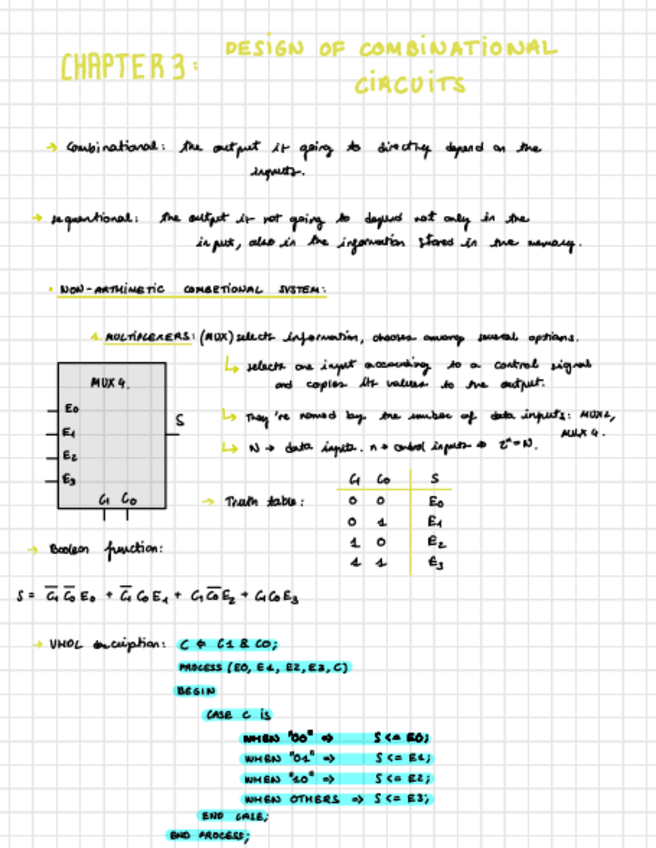 CHAPTER 3:
DESIGN OF COMBINATIONAL
CIRCUITS
→ Combinational: the output is going to directly depend on the
inputs.
→ sequentional: the output is not going to depend not only in the
input, also in the information stored in the memory.
• NON-ARTHIMETIC COMBETIONAL SYSTEM:
1. MULTIPLEXERS: (MUX) selects information, chooses among several options.
↳ selects one input according to a control signal
and copies its values to the output.
↳ They're named by the number of data inputs: MUX2,
MUX4.
↳ N → data inputs. n → control inputs → 2ⁿ=N.
MUX 4.
E0
E1
E2
E3
S
C1 C0
→ Truth table:
C1 C0 S
0 0 E0
0 1 E1
1 0 E2
1 1 E3
→ Boolean function:
S = C̅1 C̅0 E0 + C̅1 C0 E1 + C1 C̅0 E2 + C1 C0 E3
→ VHDL description: C <= C1 & C0;
PROCESS (E0, E1, E2, E3, C)
BEGIN
CASE C is
WHEN "00" => S <= E0;
WHEN "01" => S <= E1;
WHEN "10" => S <= E2;
WHEN OTHERS => S <= E3;
END CASE;
END PROCESS;